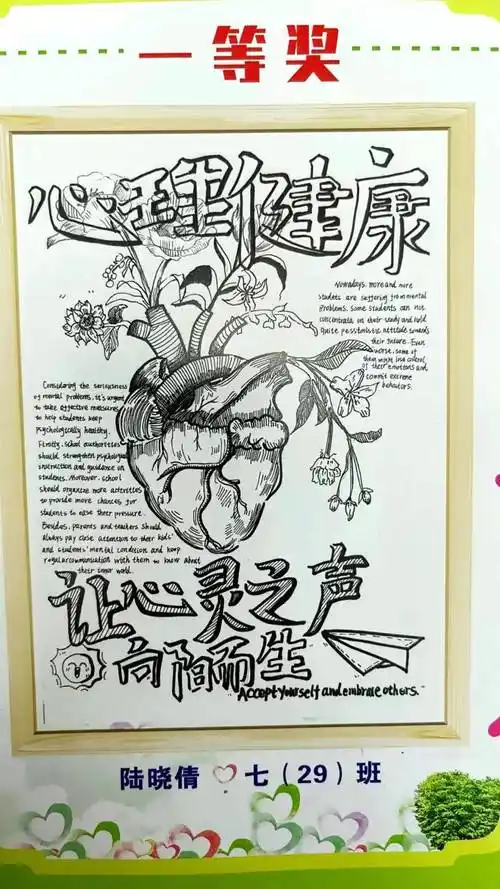 一等奖
心理健康
Nowadays, more and more
students are suffering from mental
problems. Some students can not
concentrate on their study and hold
quite pessimistic attitude towards
their future. Even
worse, some of
them might lose control
of their emotions and
commit extreme
behaviors.
Considering the seriousness
of mental problems, it's urgent
to take effective measures
to help students keep
psychologically healthy.
Firstly, school authorities
should strengthen psychological
instruction and guidance on
students. Moreover, school
should organize more activities
to provide more chances for
students to ease their pressure.
Besides, parents and teachers should
always pay close attention to their kids'
and students' mental condition and keep
regular communication with them to know about
their inner world.
让心灵之声
向阳而生
"Accept yourself and embrace others."
陆晓倩 七（29）班